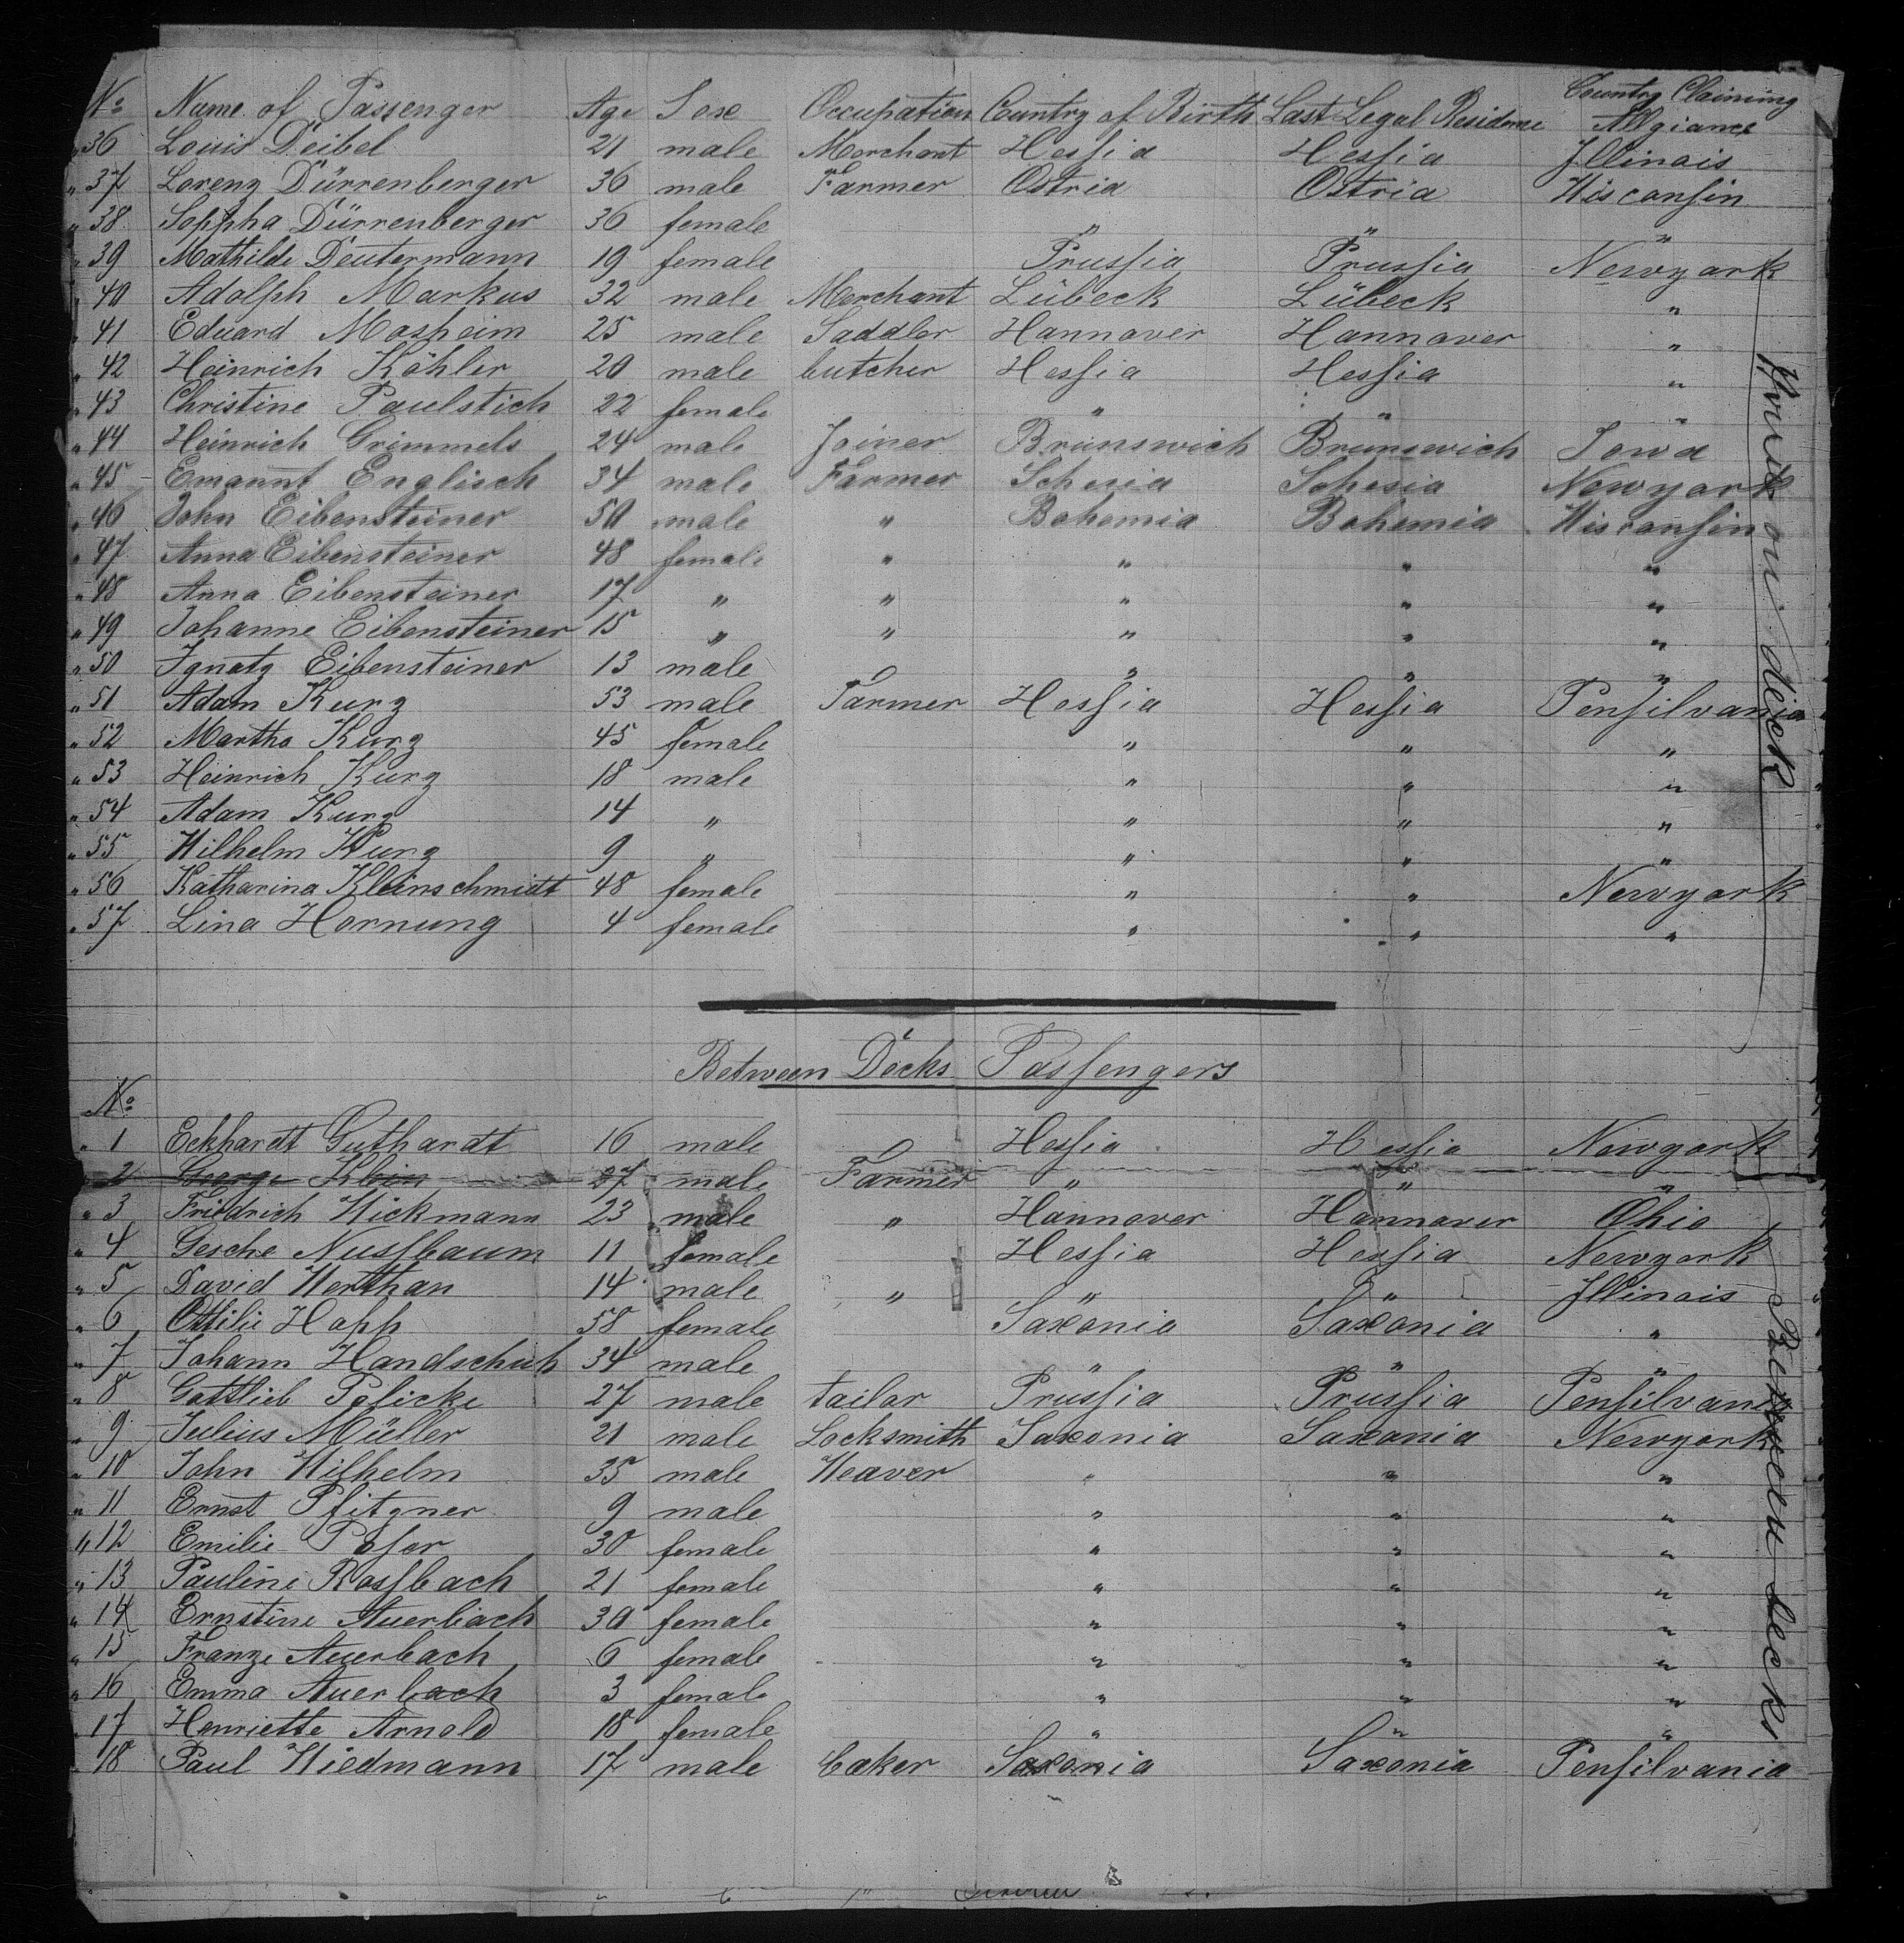 No Name of Passenger Age Sex Occupation Country of Birth Last Legal Residence Country Claiming Allgiance
" 36 Louis Deibel 21 male Merchant Hessia Hessia Illinois
" 37 Lorenz Dürrenberger 36 male Farmer Ostria Ostria Wisconsin
" 38 Sophha Dürrenberger 36 female " " "
" 39 Mathilde Deutermann 19 female Prussia Prussia Newyork
" 40 Adolph Markus 32 male Merchant Lübeck Lübeck "
" 41 Eduard Mosheim 25 male Saddler Hannover Hannover "
" 42 Heinrich Köhler 20 male butcher Hessia Hessia "
" 43 Christine Paulstich 22 female " " "
" 44 Heinrich Grimmels 24 male Joiner Brunswich Brunswich Iowa
" 45 Emannt Englisch 34 male Farmer Schesia Schesia Newyork
" 46 John Eibensteiner 50 male " Bohemia Bohemia Wisconsin
" 47 Anna Eibensteiner 48 female " " " "
" 48 Anna Eibensteiner 17 " " " " "
" 49 Johanne Eibensteiner 15 " " " " "
" 50 Ignatz Eibensteiner 13 male " " "
" 51 Adam Kurz 53 male Farmer Hessia Hessia Pensilvania
" 52 Martha Kurz 45 female " " "
" 53 Heinrich Kurz 18 male " " "
" 54 Adam Kurz 14 " " " "
" 55 Wilhelm Kurz 9 " " " "
" 56 Katharina Kleinschmidt 48 female " " Newyork
" 57 Lina Hornung 4 female " " "
on deck
Between Decks Passengers
No
" 1 Eckhardt Guthardt 16 male Hessia Hessia Newyork
" 2 George Klein 27 male Farmer " " "
" 3 Friedrich Wickmann 23 male " Hannover Hannover Ohio
" 4 Gesche Nussbaum 11 female Hessia Hessia Newyork
" 5 David Werthan 14 male " " " Illinois
" 6 Ottilie Hopp 58 female Saxonia Saxonia "
" 7 Johann Handschuh 34 male " " "
" 8 Gottlieb Policke 27 male tailor Prussia Prussia Pensilvania
" 9 Julius Müller 21 male Locksmith Saxonia Saxonia Newyork
" 10 John Wilhelm 35 male Weaver " " "
" 11 Ernst Pfitzner 9 male " " "
" 12 Emilie Poser 30 female " " "
" 13 Pauline Rossbach 21 female " " "
" 14 Ernstine Auerbach 30 female " " "
" 15 Franze Auerbach 6 female " " "
" 16 Emma Auerbach 3 female " " "
" 17 Henriette Arnold 18 female " " "
" 18 Paul Wiedmann 17 male baker Saxonia Saxonia Pensilvania
Between decks